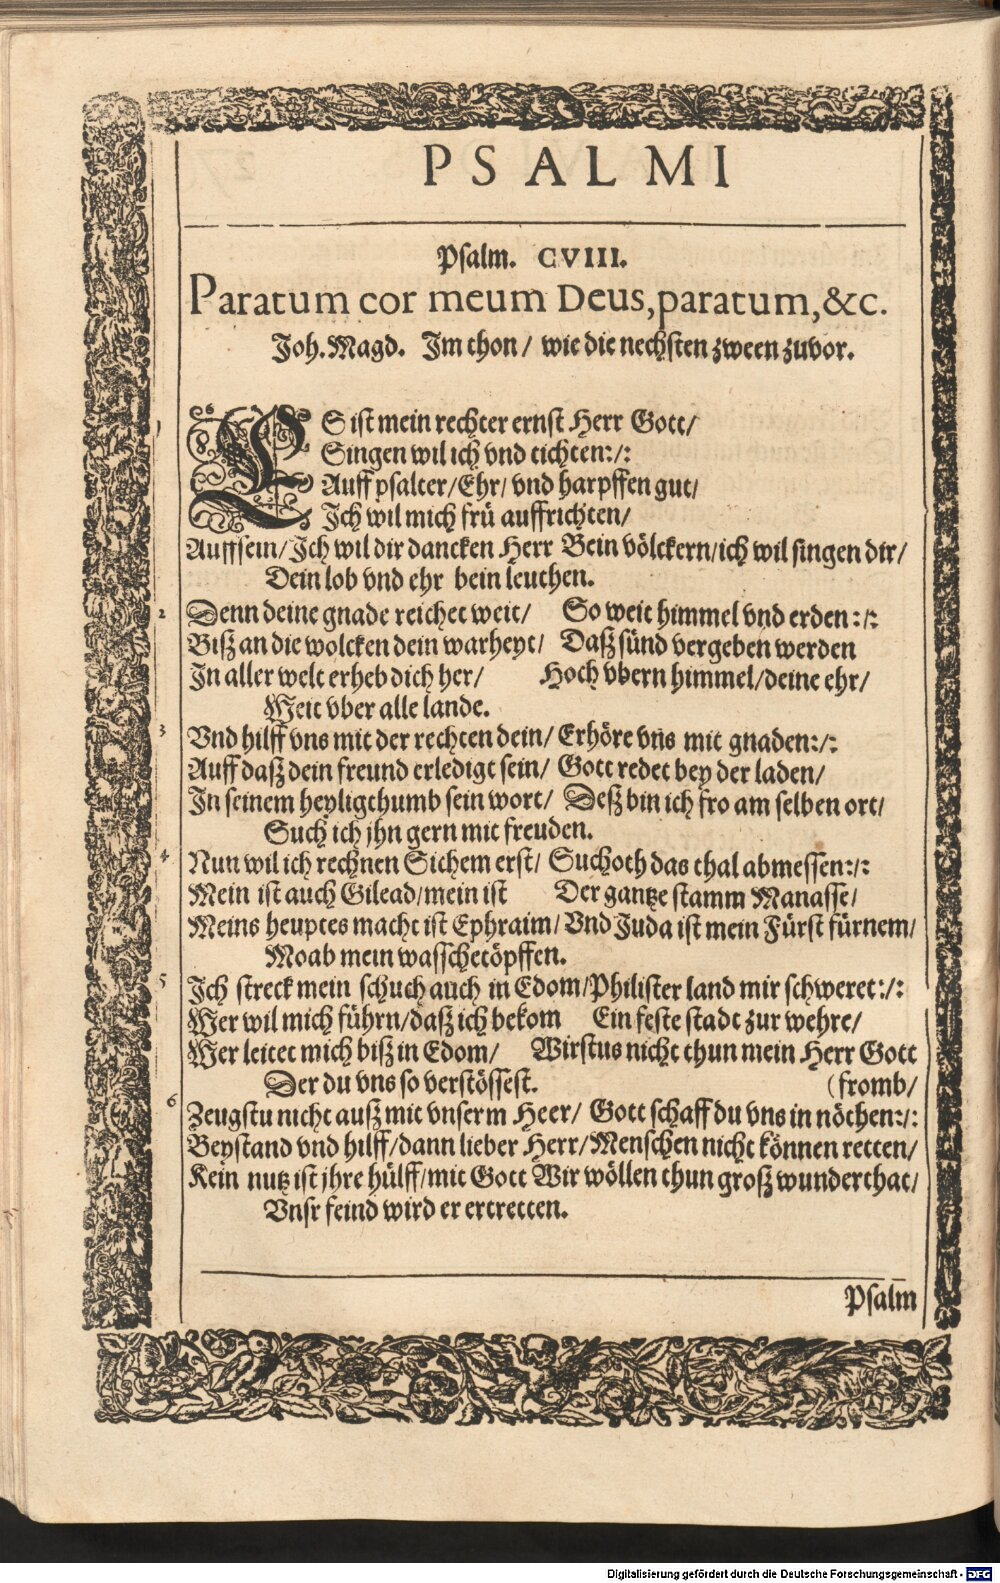 PSALMI
Psalm. CVIII.
Paratum cor meum Deus, paratum, &c.
Joh. Magd. Im thon / wie die nechsten zween zuvor.
1 ES ist mein rechter ernst Herr Gott /
Singen wil ich vnd tichten :/:
Auff psalter / Ehr / vnd harpffen gut /
Ich wil mich frü auffrichten /
Auffsein / Ich wil dir dancken Herr Bein völckern / ich wil singen dir /
Dein lob vnd ehr bein leuthen.
2 Denn deine gnade reichet weit / So weit himmel vnd erden :/:
Bisz an die wolcken dein warheyt / Dasz sünd vergeben werden
In aller welt erheb dich her / Hoch vbern himmel / deine ehr /
Weit vber alle lande.
3 Vnd hilff vns mit der rechten dein / Erhöre vns mit gnaden :/:
Auff dasz dein freund erledigt sein / Gott redet bey der laden /
In seinem heyligthumb sein wort / Desz bin ich fro am selben ort /
Such ich jhn gern mit freuden.
4 Nun wil ich rechnen Sichem erst / Suchoth das thal abmessen :/:
Mein ist auch Gilead / mein ist Der gantze stamm Manasse /
Meins heuptes macht ist Ephraim / Vnd Juda ist mein Fürst fürnem /
Moab mein wasschetöpffen.
5 Ich streck mein schuch auch in Edom / Philister land mir schweret :/:
Wer wil mich führn / dasz ich bekom Ein feste stadt zur wehre /
Wer leitet mich bisz in Edom / Wirstus nicht thun mein Herr Gott
Der du vns so verstössest. (fromb /
6 Zeugstu nicht ausz mit vnserm Heer / Gott schaff du vns in nöthen :/:
Beystand vnd hilff / dann lieber Herr / Menschen nicht können retten /
Kein nutz ist jhre hülff / mit Gott Wir wöllen thun grosz wunderthat /
Vnsr feind wird er ertretten.
Psalm
Digitalisierung gefördert durch die Deutsche Forschungsgemeinschaft - DFG